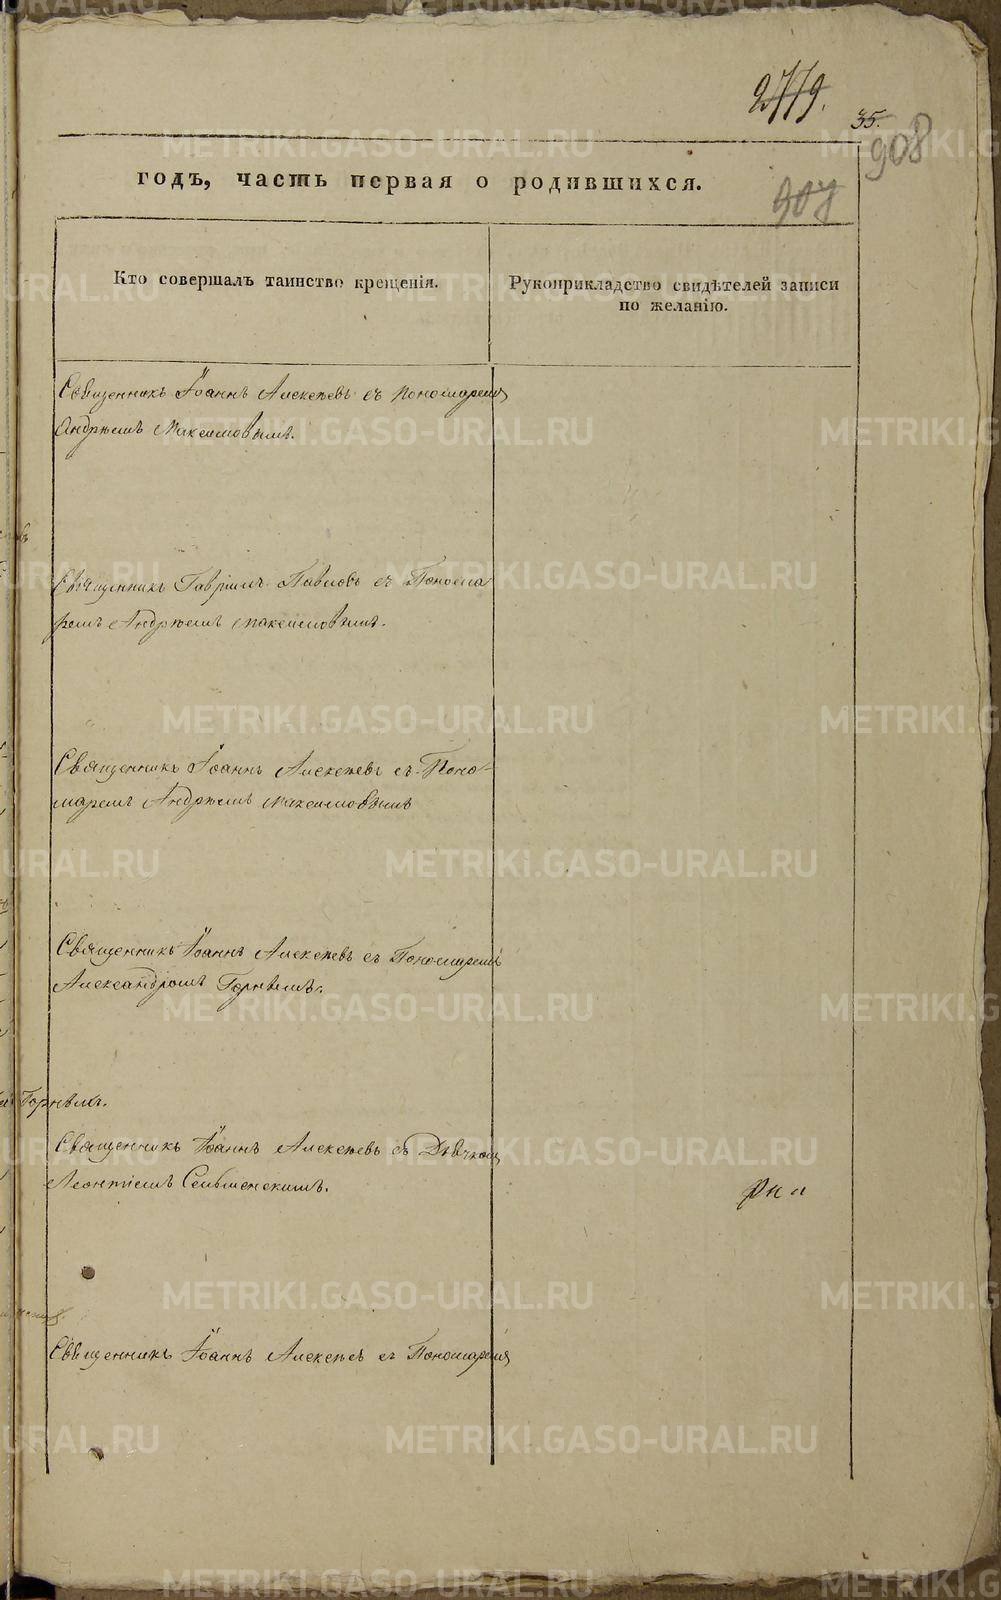 2779.
35.
908
907
годъ, часть первая о родившихся.
Кто совершалъ таинство крещенія.
Рукоприкладство свидѣтелей записи
по желанію.
Священникъ Іоаннъ Алексѣевъ съ Пономаремъ
Андрѣемъ Максимовымъ.
Священникъ Гавріилъ Павловъ съ Понома
ремъ Андрѣемъ Максимовымъ.
Священникъ Іоаннъ Алексѣевъ съ Поно-
маремъ Андрѣемъ Максимовымъ
Священникъ Іоаннъ Алексѣевъ съ Пономаремъ
Александромъ Горнымъ.
Горныхъ.
Священникъ Іоаннъ Алексѣевъ съ Дьячкомъ
Леонтіемъ Сельменскимъ.
рна
Священникъ Іоаннъ Алексѣевъ съ Пономаремъ
METRIKI.GASO-URAL.RU